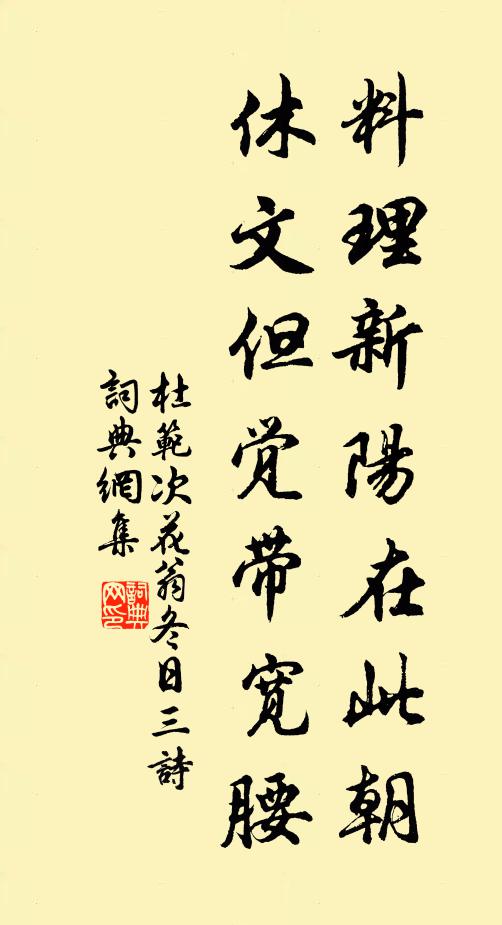 料理新陽在此朝
休文但觉帶寬腰
杜範次花翁冬日三詩
詞典網集
詞典网印